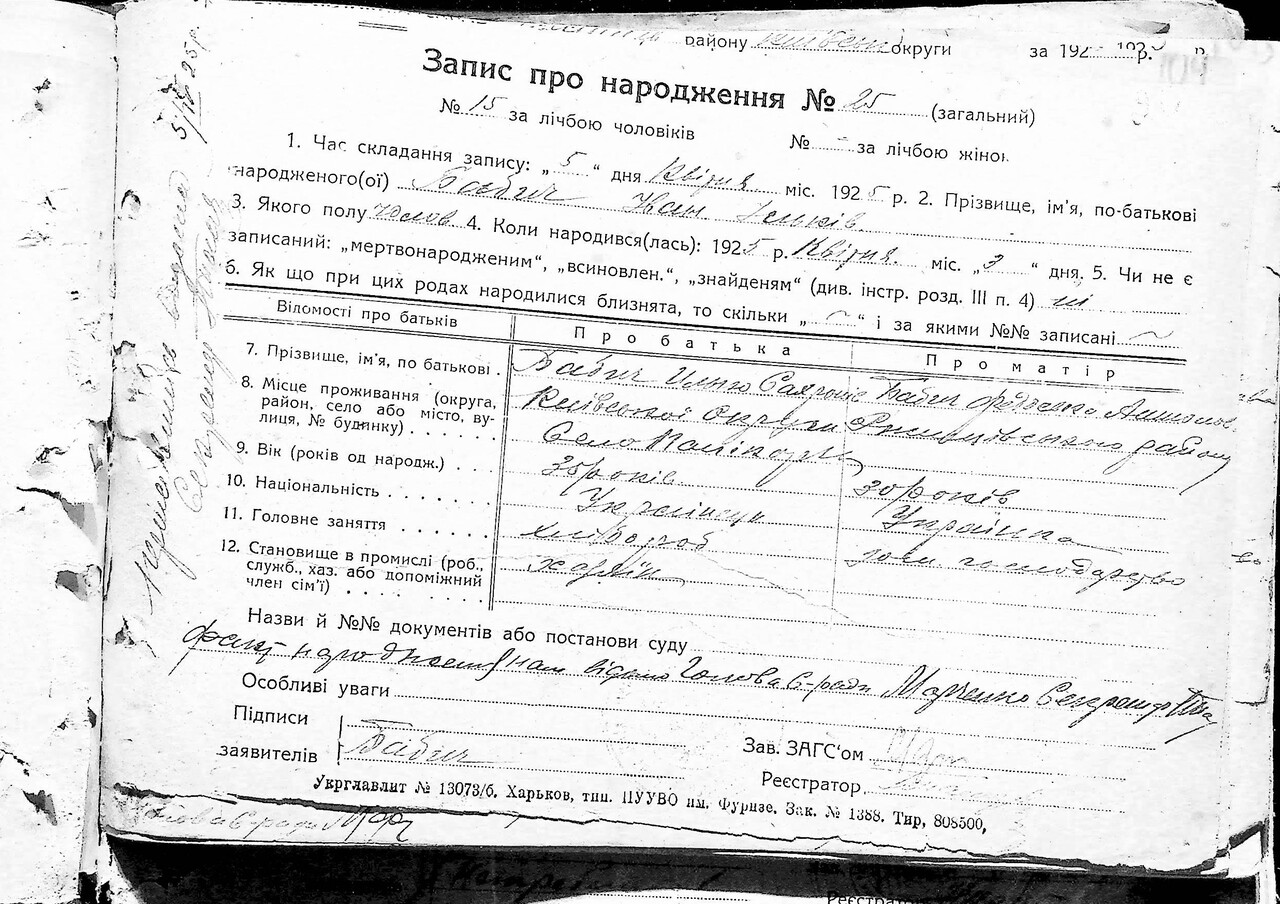 району Київської округи за 192 р.
Запис про народження № 25 (загальний)
№ 15 за лічбою чоловіків № - за лічбою жінок
1. Час складання запису: „ 5 “ дня Квітня міс. 1925 р. 2. Прізвище, ім’я, по-батькові
народженого(ої) Бабич Іван Ільків.
3. Якого полу чолов 4. Коли народився(лась): 1925 р. Квітня. міс. „ 3 “ дня. 5. Чи не є
записаний: „мертвонародженим“, „всиновлен.“, „знайденям“ (див. інстр. розд. III п. 4) ні
6. Як що при цих родах народилися близнята, то скільки „ ~ “ і за якими №№ записані ~
Відомості про батьків Про батька Про матір
7. Прізвище, ім’я, по батькові . Бабич Илько Бабич
8. Місце проживання (округа, Київської Округи Ржищівського району
район, село або місто, ву- Село
лиця, № будинку) . . . . . .
9. Вік (років од народж.) . . . 35 років 30 років
10. Національність . . . . . . . Українець Українка
11. Головне заняття . . . . . Хлібороб дом. господарство
12. Становище в промислі (роб., Хазяїн
служб., хаз. або допоміжний
член сім’ї) . . . . . . . . .
Назви й №№ документів або постанови суду
факт народження нам відомо Голова С-ради Марченко Секретар
Особливі уваги
Підписи
заявителів Бабич
Зав. ЗАГС‘ом
Реєстратор
Укрглавлит № 13073/б. Харьков, тип. ПУУВО им. Фрунзе. Зак. № 1388. Тир, 808500,
Голова С-ради
Реєстратор